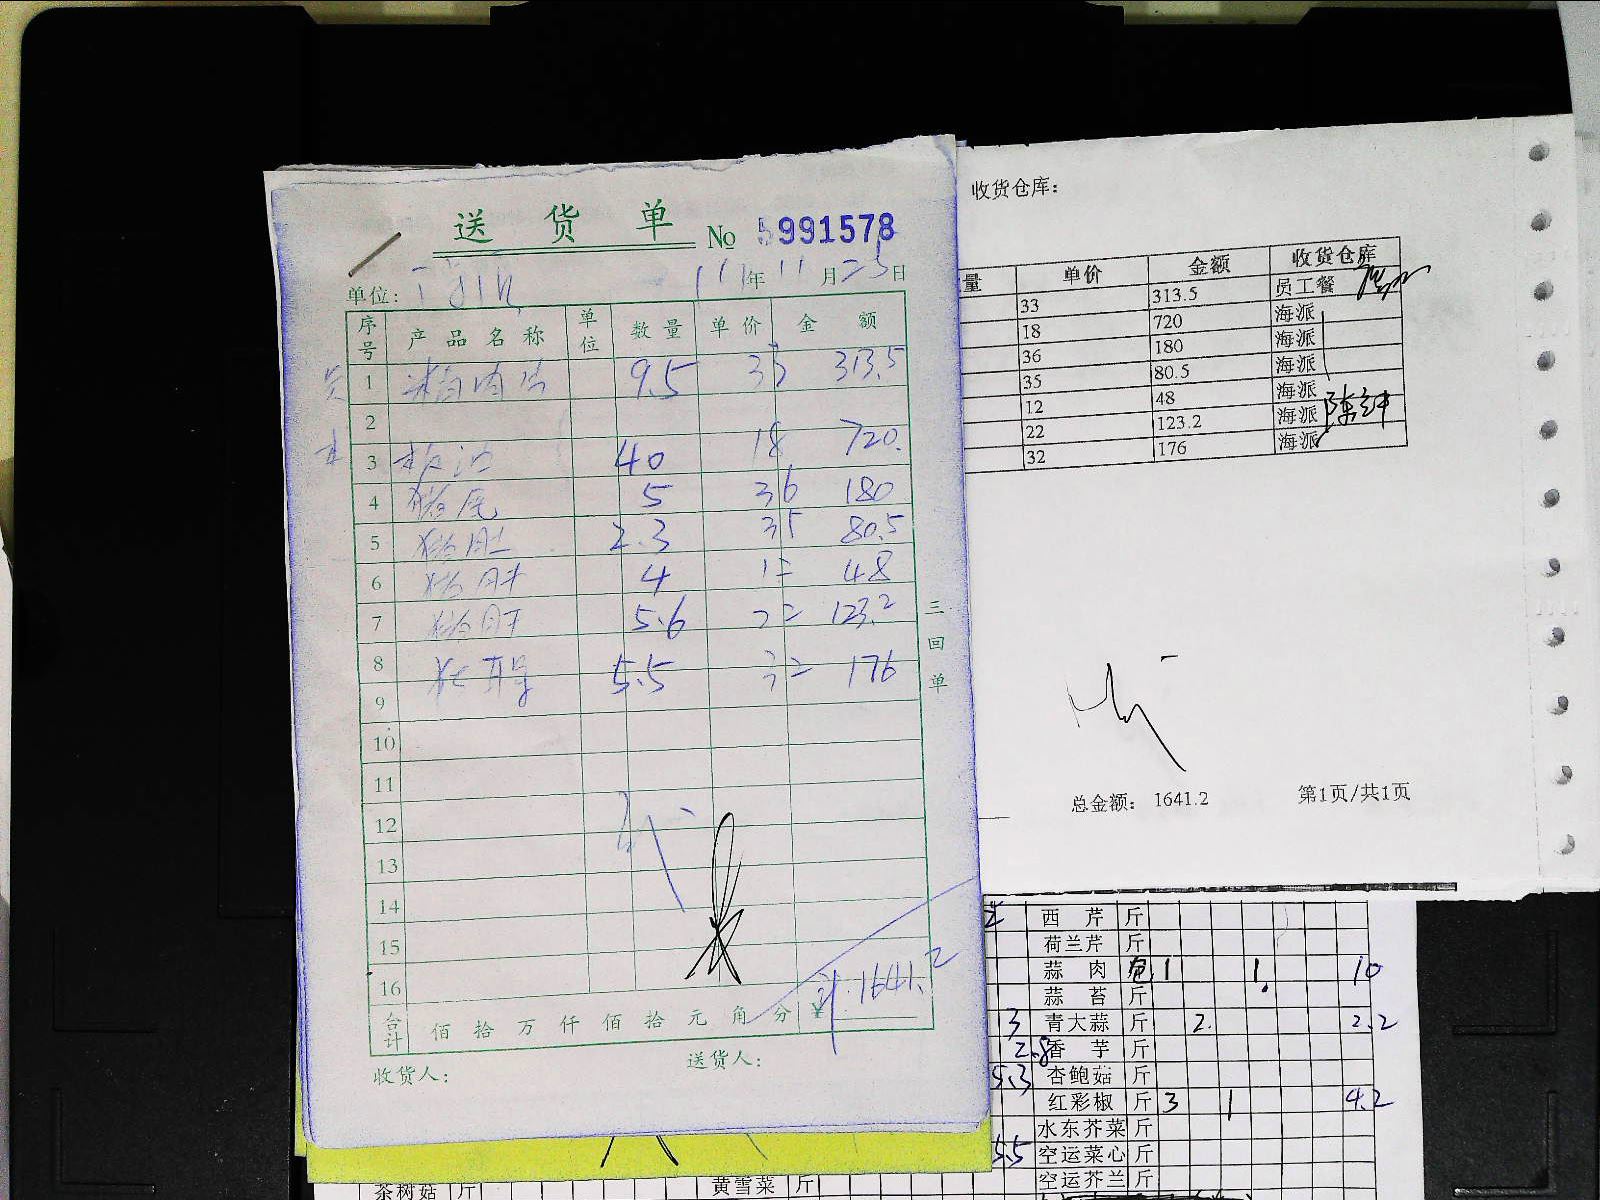 送货单 No 5991578
单位: 年 11 月 25 日
序号 产品名称 单位 数量 单价 金额
1 9.5 33 313.5
2
3 板油 40 18 720.
4 猪尾 5 36 180
5 猪肚 2.3 35 80.5
6 4 12 48
7 5.6 22 123.2
8 5.5 32 176
9
10
11
12
13
14
15
16
计.1641.2
合计 佰拾万仟佰拾元角分 ¥
收货人: 送货人:
三回单
收货仓库:
量 单价 金额 收货仓库
33 313.5 员工餐
18 720 海派
36 180 海派
35 80.5 海派
12 48 海派
22 123.2 海派
32 176 海派
总金额: 1641.2 第1页/共1页
西芹 斤
荷兰芹 斤
蒜肉 包 1 1. 10
蒜苔 斤
3 青大蒜 斤 2. 2.2
2.8 香芋 斤
5.3 杏鲍菇 斤
红彩椒 斤 3 1 4.2
水东芥菜 斤
5.5 空运菜心 斤
空运芥兰 斤
茶树菇 斤 黄雪菜 斤